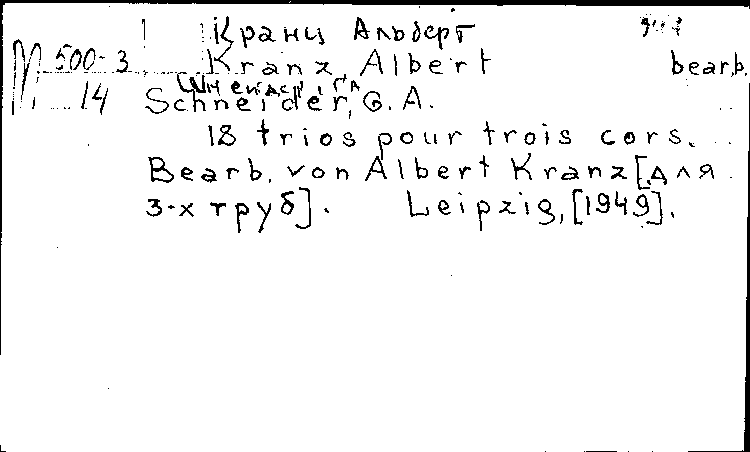 Кранц Альберт
М 500-3
14
Kranz, Albert bearb.
Шнейдер, Г.А.
Schneider, G. A.
18 trios pour trois cors.
Bearb. von Albert Kranz [для
3-х труб]. Leipzig, [1949].